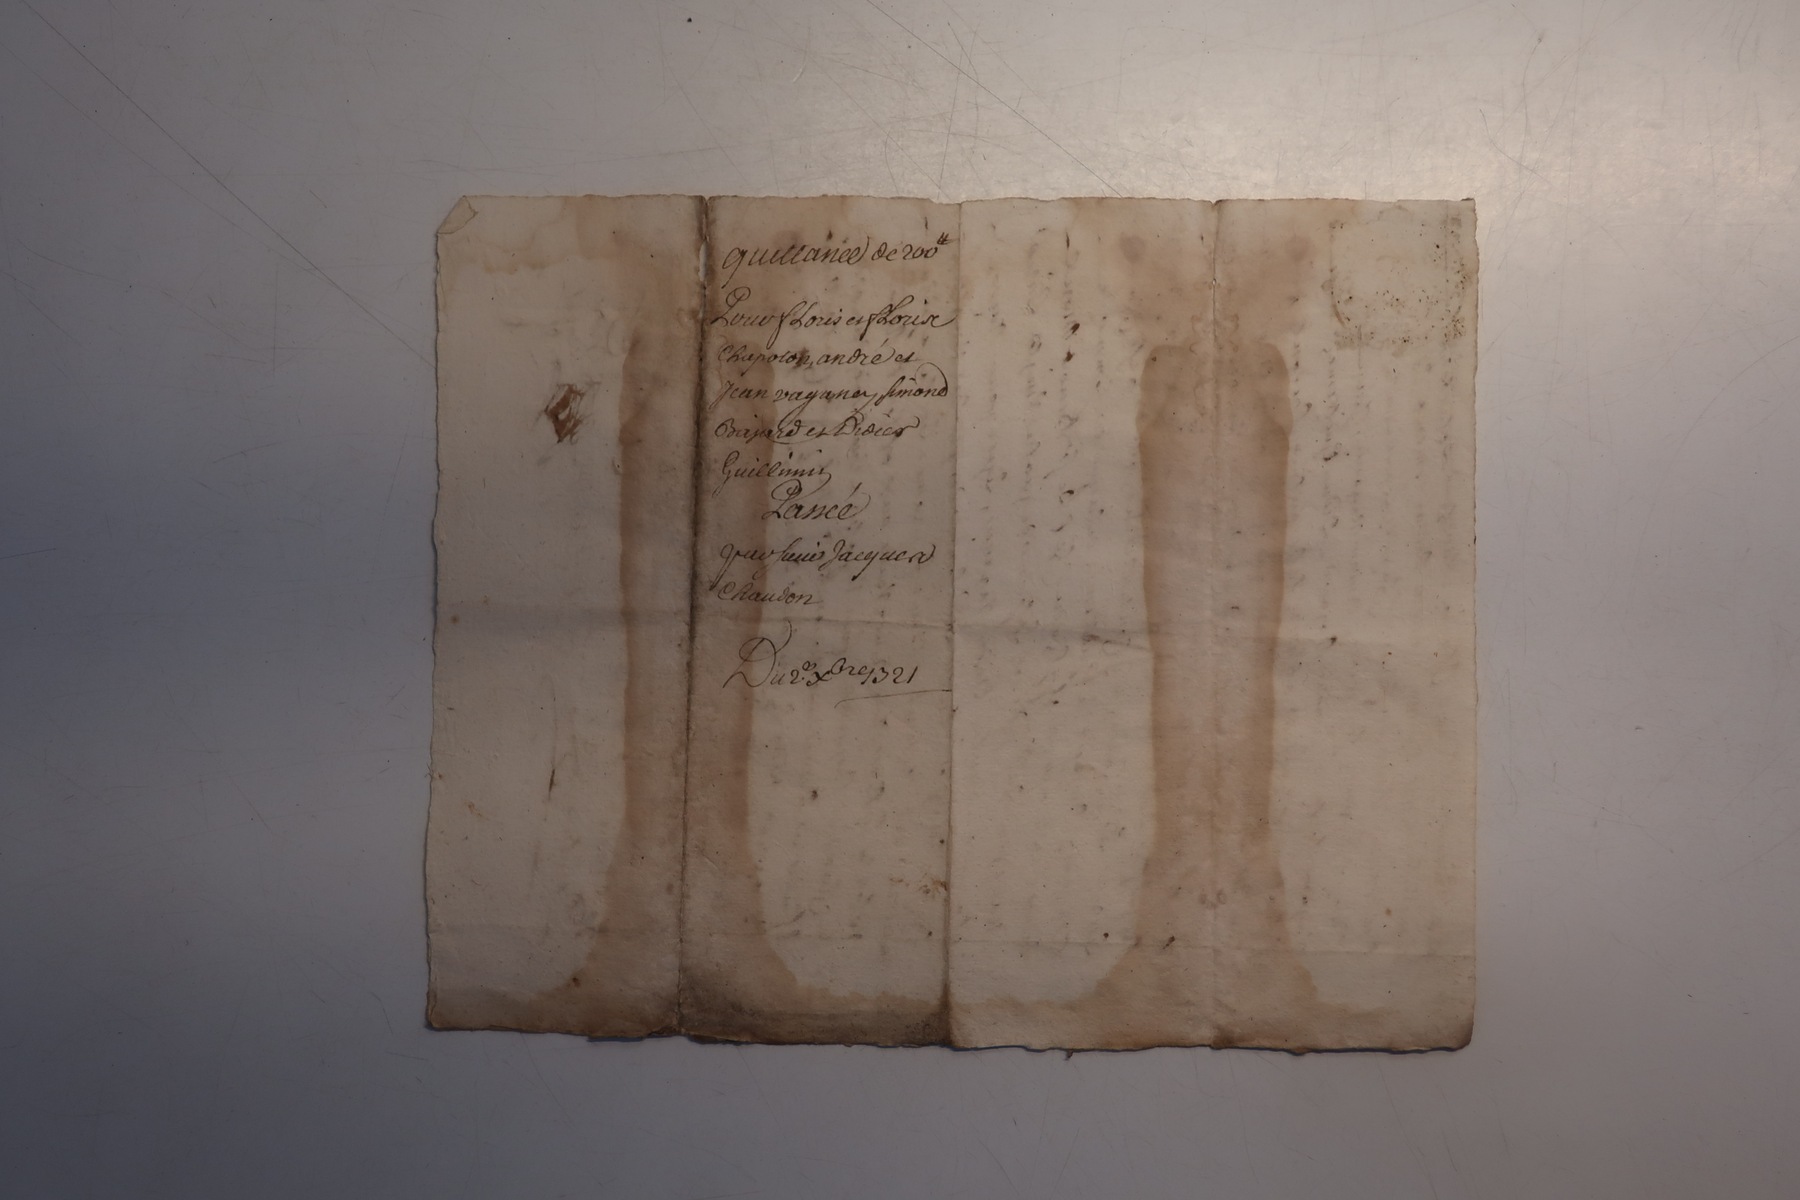 quittance de 200ᵗᵗ
Pour sʳ Loüis et sʳ Loüise
Chapoton, andré et
Jean vaganey, simond
Bajard et Didier
Guillimin
Passée
par sieur Jacques
Chaudon
Du 2ᵉ xbre 1721